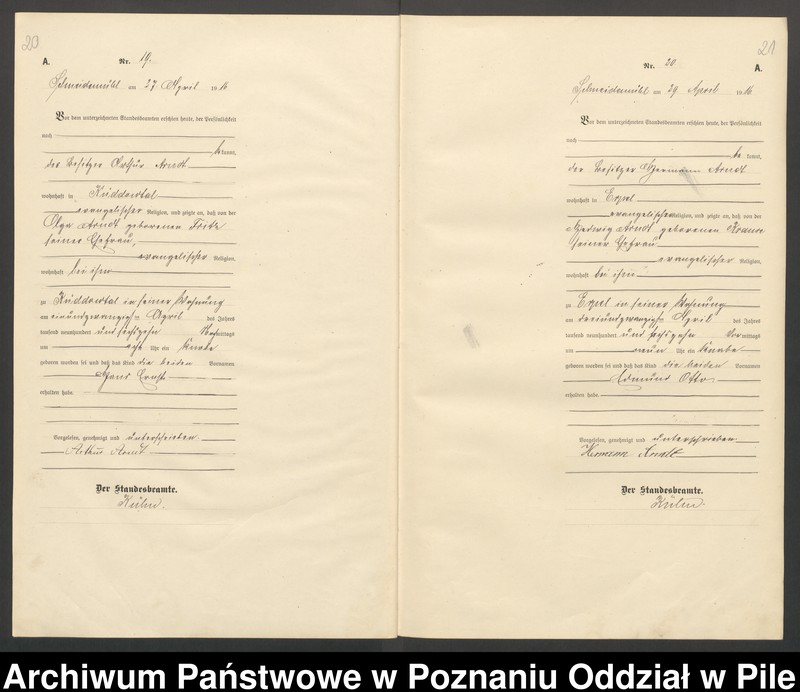 20
A.
Nr. 19.
Schneidemühl am 27. April 1916
Vor dem unterzeichneten Standesbeamten erschien heute, der Persönlichkeit
nach
bekannt,
der Besitzer Arthur Arndt
wohnhaft in Küddowtal
evangelischer Religion, und zeigte an, daß von der
Olga Arndt geborenen Fritz
seiner Ehefrau,
evangelischer Religion,
wohnhaft bei ihm
zu Küddowtal in seiner Wohnung
am einundzwanzigsten April des Jahres
tausend neunhundert und sechszehn Vormittags
um acht Uhr ein Knabe
geboren worden sei und daß das Kind die beiden Vornamen
Hans Ernst
erhalten habe.
Vorgelesen, genehmigt und unterschrieben
Arthur Arndt
Der Standesbeamte.
21
Nr. 20
A.
Schneidemühl am 29 April 1916
Vor dem unterzeichneten Standesbeamten erschien heute, der Persönlichkeit
nach
bekannt,
der Besitzer Hermann Arndt
wohnhaft in Erpel
evangelischer Religion, und zeigte an, daß von der
Hedwig Arndt geborenen
seiner Ehefrau
evangelischer Religion,
wohnhaft bei ihm
zu Erpel in seiner Wohnung
am dreiundzwanzigsten April des Jahres
tausend neunhundert und sechszehn Vormittags
um neun Uhr ein Knabe
geboren worden sei und daß das Kind die beiden Vornamen
Edmund Otto
erhalten habe.
Vorgelesen, genehmigt und unterschrieben
Hermann Arndt
Der Standesbeamte.
Archiwum Państwowe w Poznaniu Oddział w Pile